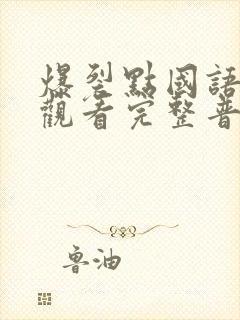 爆裂點國語
觀看完整普
魯油